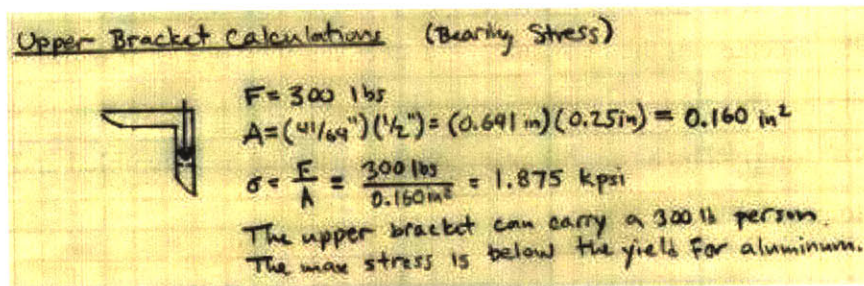 Upper Bracket Calculations (Bearing Stress)
F = 300 lbs
A = (41/64")(1/2") = (0.641 in)(0.25in) = 0.160 in²
σ = F/A = 300 lbs/0.160in² = 1.875 kpsi
The upper bracket can carry a 300 lb person.
The max stress is below the yield for aluminum.